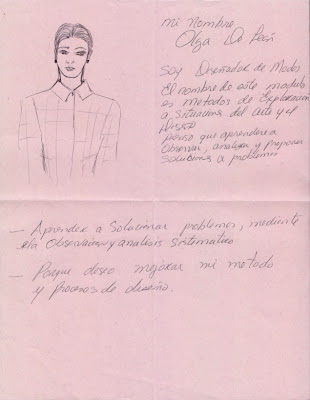 mi nombre
Olga De León
Soy Diseñador de Modas
El nombre de este modulo
es metodos de Exploracion
a situacion del Arte y el
Diseño
Pienso que aprendere a
Observar, analizar y proponer
soluciones a problemas
— Aprender a Solucionar problemas, mediante
la Observacion y analisis sistematico
— Porque deseo mejorar mi metodo
y procesos de diseño.